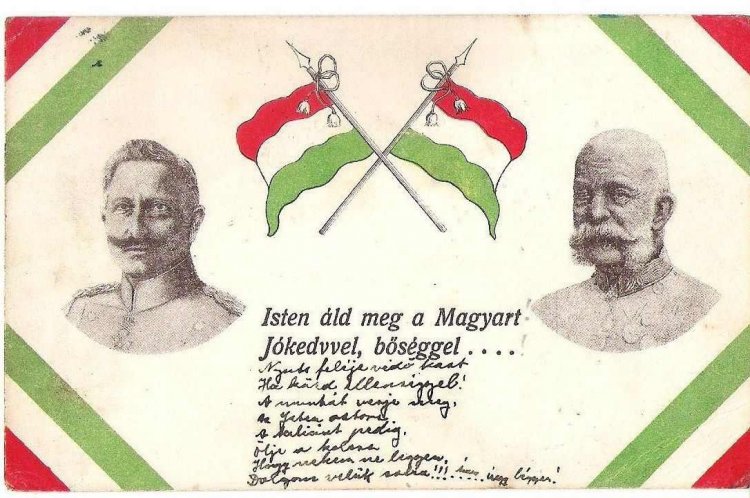 Isten áld meg a Magyart
Jókedvvel, bőséggel ....
Nyuts feléje védő kart
Ha küzd ellenséggel!
A muszkát verje meg,
az Isten ostora
A taliánt pedig,
Ölje a kolera
Hogy nekem ne legyen,
Dolgom velük soha!!! .... úgy légyen!